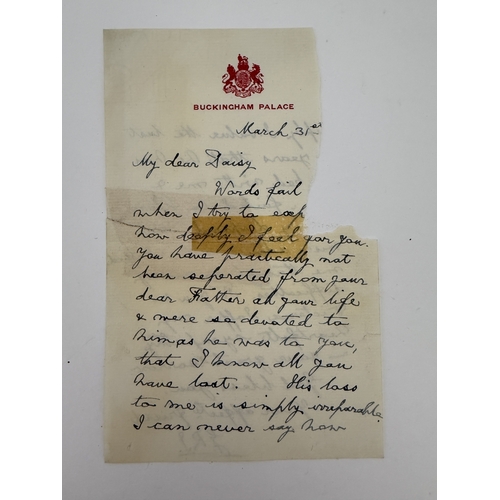 BUCKINGHAM PALACE
March 31st
My dear Daisy
Words fail
when I try to exp
how deeply I feel for you.
You have practically not
been seperated from your
dear Father all your life
& were so devoted to
him as he was to you,
that I know all you
have lost. His loss
to me is simply irreparable.
I can never say how